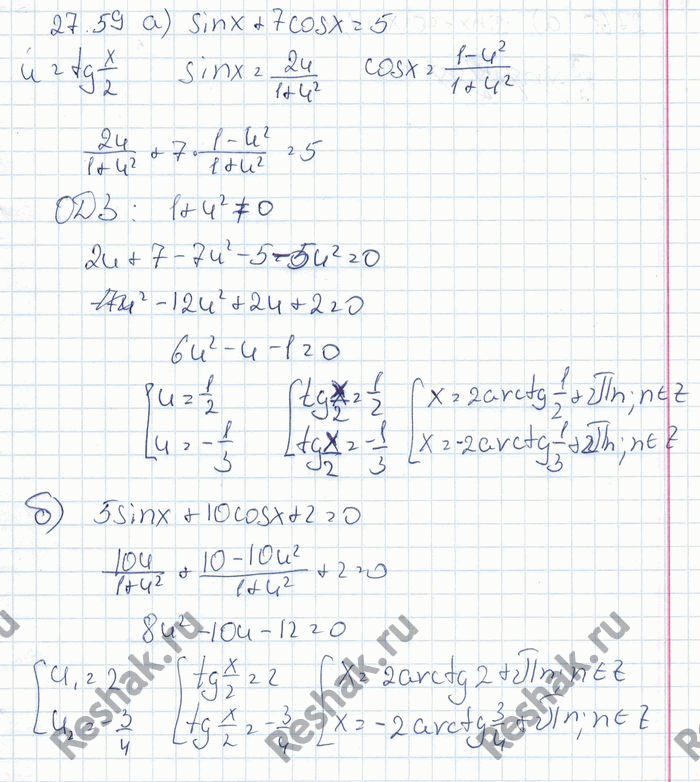 27.59 а) sinx + 7cosx = 5
u = tg x/2   sinx = 2u/(1+u²)   cosx = (1-u²)/(1+u²)
2u/(1+u²) + 7 · (1-u²)/(1+u²) = 5
ОДЗ: 1+u² ≠ 0
2u + 7 - 7u² - 5 - 5u² = 0
-12u² + 2u + 2 = 0
6u² - u - 1 = 0
[u = 1/2   [tg x/2 = 1/2   [x = 2arctg 1/2 + 2πn; n∈Z
[u = -1/3   [tg x/2 = -1/3   [x = -2arctg 1/3 + 2πn; n∈Z
б) 5sinx + 10cosx + 2 = 0
10u/(1+u²) + (10-10u²)/(1+u²) + 2 = 0
8u² - 10u - 12 = 0
[u₁ = 2   [tg x/2 = 2   [x = 2arctg 2 + 2πn, n∈Z
[u₂ = -3/4   [tg x/2 = -3/4   [x = -2arctg 3/4 + 2πn; n∈Z
Reshak.ru
Reshak.ru
Reshak.ru